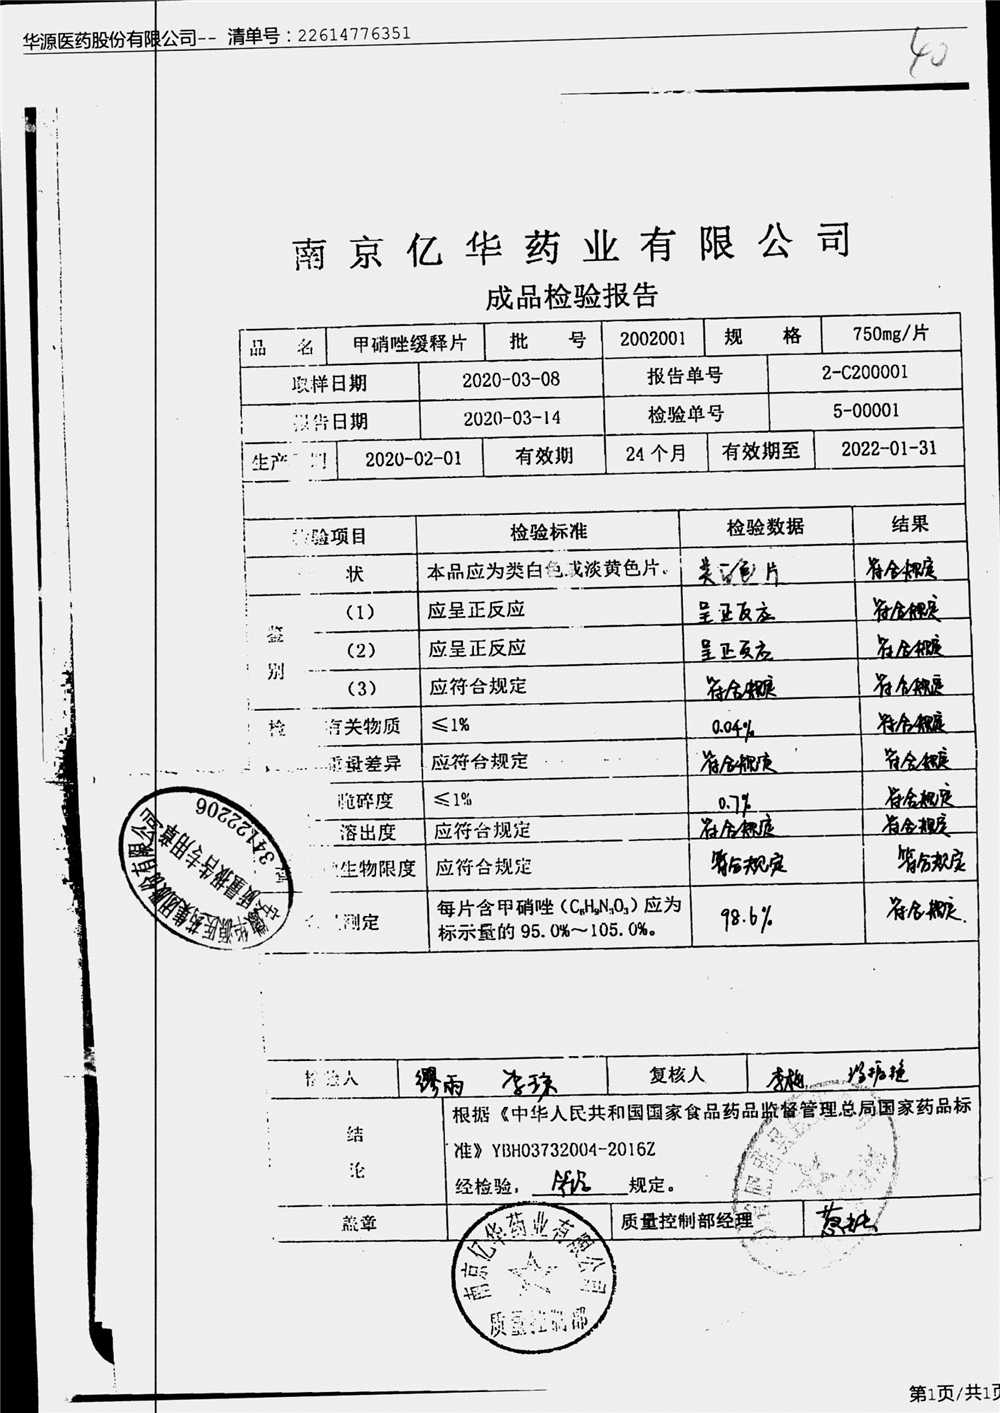 华源医药股份有限公司-- 清单号：22614776351
40
南京亿华药业有限公司
成品检验报告
品 名 甲硝唑缓释片 批 号 2002001 规 格 750mg/片
取样日期 2020-03-08 报告单号 2-C200001
报告日期 2020-03-14 检验单号 5-00001
生产 期 2020-02-01 有效期 24个月 有效期至 2022-01-31
检验项目 检验标准 检验数据 结果
状 本品应为类白色或淡黄色片。 类白色片 符合规定
鉴别
（1） 应呈正反应 呈正反应 符合规定
（2） 应呈正反应 呈正反应 符合规定
（3） 应符合规定 符合规定 符合规定
检 有关物质 ≤1% 0.04% 符合规定
重量差异 应符合规定 符合规定 符合规定
脆碎度 ≤1% 0.7% 符合规定
溶出度 应符合规定 符合规定 符合规定
生物限度 应符合规定 符合规定 符合规定
测定 每片含甲硝唑（C₆H₉N₃O₃）应为 98.6% 符合规定
标示量的95.0%～105.0%。
检验人 缪雨 复核人 李梅
结论 根据《中华人民共和国国家食品药品监督管理总局国家药品标
准》YBH03732004-2016Z
经检验，符合规定。
盖章 质量控制部经理
南京亿华药业有限公司
质量控制部
华源医药集团股份有限公司
质量报告专用章
341222206
第1页/共1页